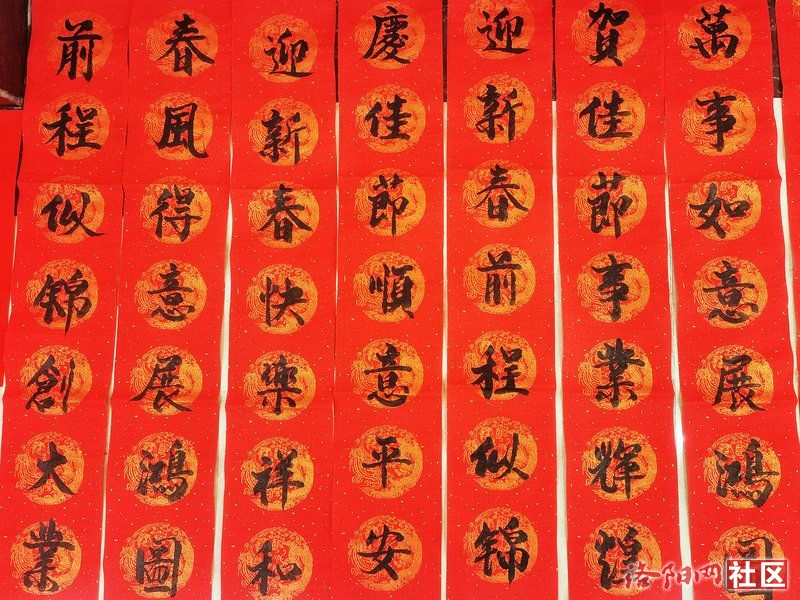 萬事如意展鴻圖
賀佳節事業輝煌
迎新春前程似锦
慶佳節順意平安
迎新春快樂祥和
春風得意展鴻圖
前程似锦創大業
洛阳网社区